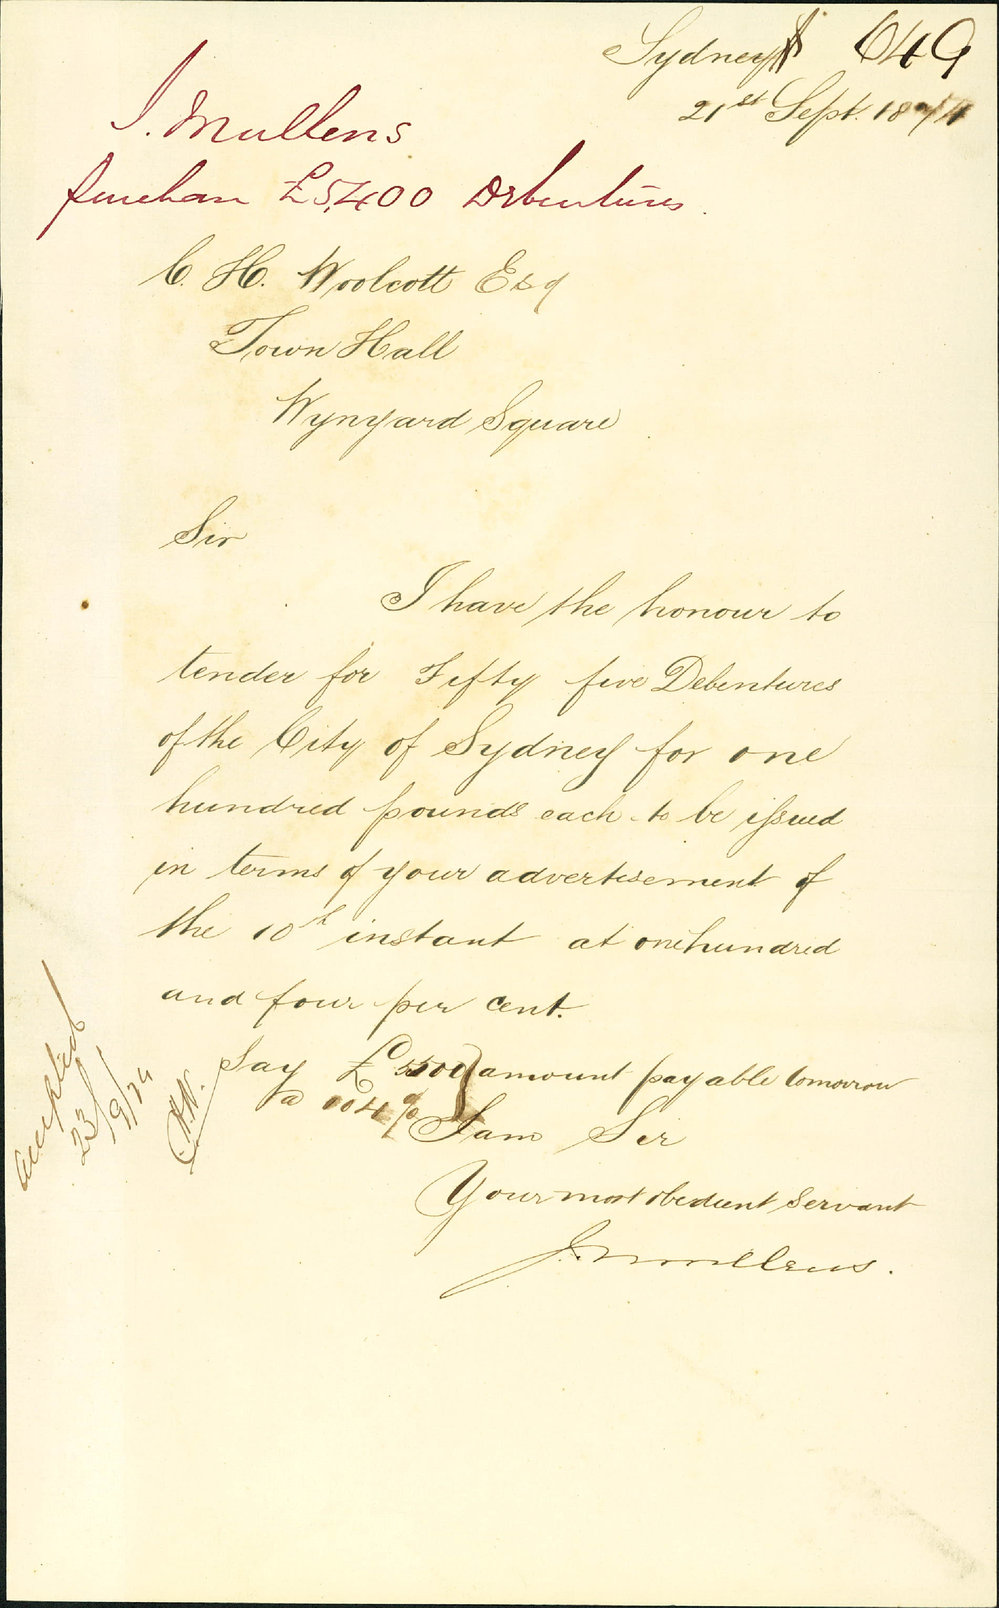 Sydney 649
21st Sept. 1874
J. Mullens
purchase £5,400 Debentures.
C. H. Woolcott Esq
Town Hall
Wynyard Square
Sir
I have the honour to
tender for Fifty five Debentures
of the City of Sydney for one
hundred pounds each to be issued
in terms of your advertisement of
the 10th instant at one hundred
and four per cent.
Say £5500 } amount payable tomorrow
a 104 %
I am Sir
Your most obedient Servant
J. Mullens.
Accepted
23/9/74
C.H.W.